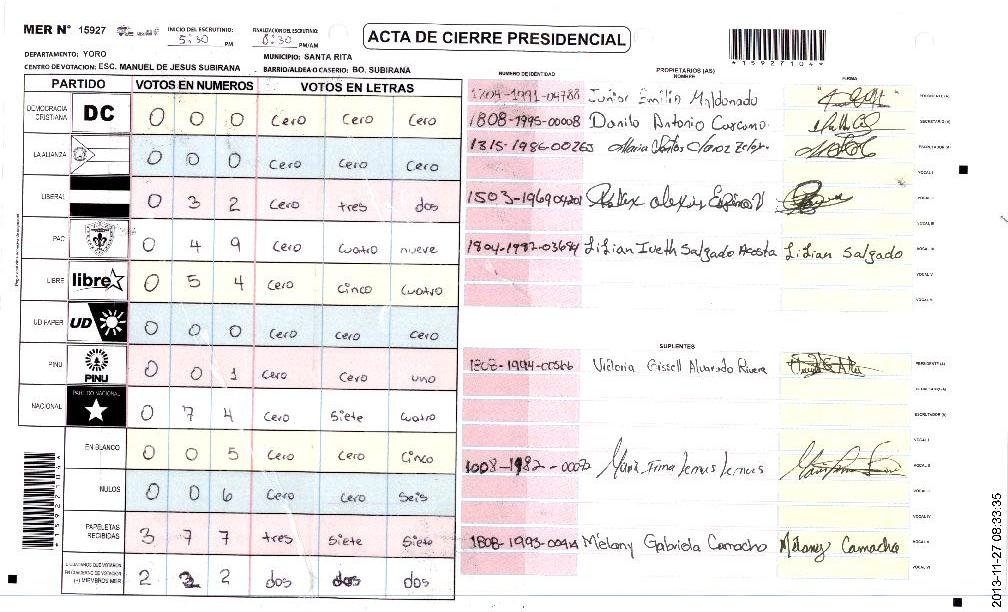 MER N° 15927 INICIO DEL ESCRUTINIO: 5:30 PM FINALIZACION DEL ESCRUTINIO: 8:30 PM/AM
ACTA DE CIERRE PRESIDENCIAL
DEPARTAMENTO: YORO MUNICIPIO: SANTA RITA
CENTRO DE VOTACION: ESC. MANUEL DE JESUS SUBIRANA BARRIO/ALDEA O CASERIO: BO. SUBIRANA
*15927104*
PARTIDO VOTOS EN NUMEROS VOTOS EN LETRAS
DEMOCRACIA CRISTIANA DC 0 0 0 Cero Cero Cero
LA ALIANZA 0 0 0 Cero Cero Cero
LIBERAL 0 3 2 Cero tres dos
PAC 0 4 9 Cero cuatro nueve
LIBRE libre 0 5 4 Cero cinco cuatro
UD FAPER UD 0 0 0 Cero Cero Cero
PINU PINU 0 0 1 Cero Cero uno
NACIONAL PARTIDO NACIONAL 0 7 4 Cero Siete cuatro
EN BLANCO 0 0 5 Cero Cero Cinco
NULOS 0 0 6 Cero Cero Seis
PAPELETAS RECIBIDAS 3 7 7 tres Siete Siete
CIUDADANOS QUE VOTARON
EN CUADERNO DE VOTACION
(+) MIEMBROS MER 2 2 2 dos dos dos
NUMERO DE IDENTIDAD PROPIETARIOS (AS) NOMBRE FIRMA
1804-1991-04788 Junior Emilio Maldonado PRESIDENTE (A)
1808-1995-00008 Danilo Antonio SECRETARIO (A)
1315-1986-00263 Maria ESCRUTADOR (A)
VOCAL I
1503-1969 Alexis VOCAL II
VOCAL III
1804-1982-03684 Lilian Iveth Salgado Acosta Lilian Salgado VOCAL IV
VOCAL V
VOCAL VI
SUPLENTES
1808-1994-00566 Victoria Gissell Alvarado Rivera PRESIDENTE (A)
SECRETARIO (A)
ESCRUTADOR (A)
VOCAL I
1008-1982 Maria Irma Lemus Lemus VOCAL II
VOCAL III
VOCAL IV
1808-1993-00414 Melany Gabriela Camacho Melany Camacho VOCAL V
VOCAL VI
2013-11-27 08:33:35